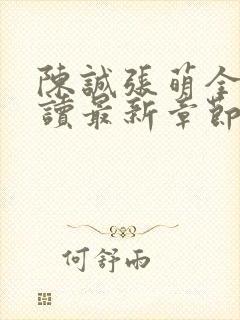 陳誠張萌全
讀最新章節
何舒雨